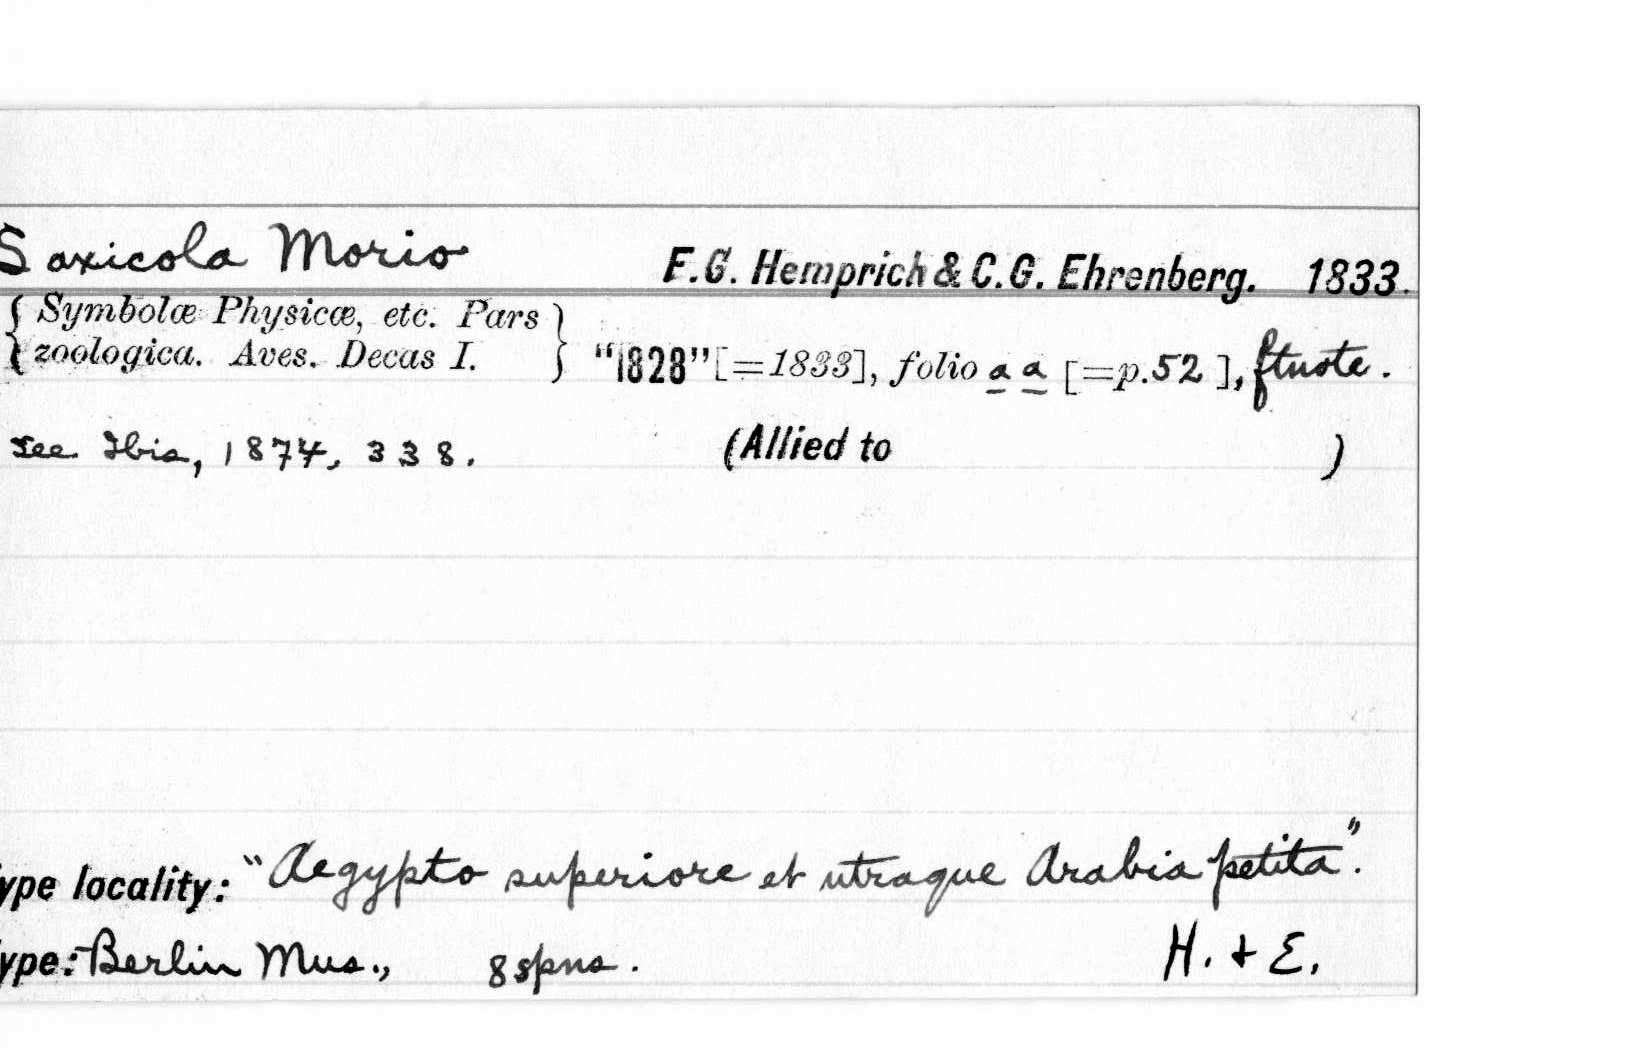 Saxicola Morio F.G. Hemprich & C.G. Ehrenberg. 1833.
{ Symbolæ Physicæ, etc. Pars }
{ zoologica. Aves. Decas I. } "1828" [=1833], folio a a [=p.52], ftnote.
see Ibis, 1874, 338. (Allied to )
ype locality: "Aegypto superiore et utraque Arabia petita".
ype: Berlin Mus., 8 spns. H. + E.